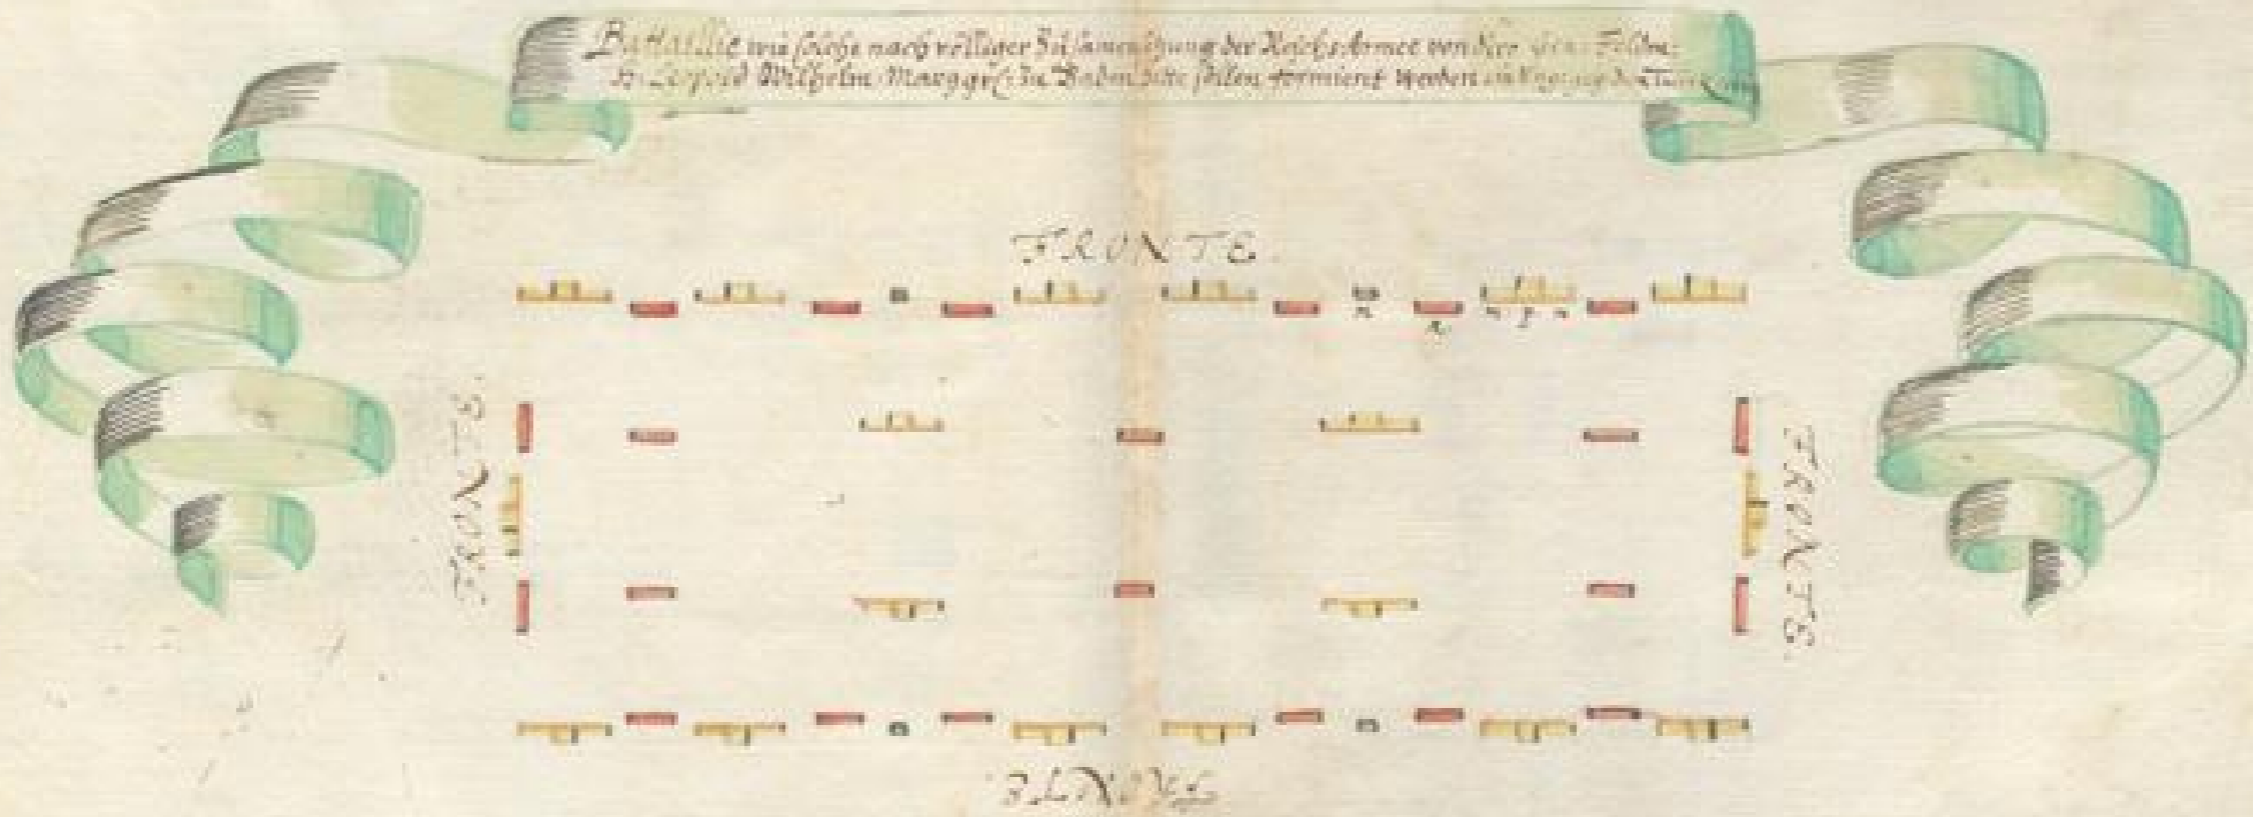 Battallie wie solche nach völliger Zusamensetzung der Reichs Armee von dero Feldm:
H: Leopold Wilhelm Marggrf: zu Baden hette sollen formiert werden
FRONTE.
FRONTE.
FRONTE.
FRONTE.